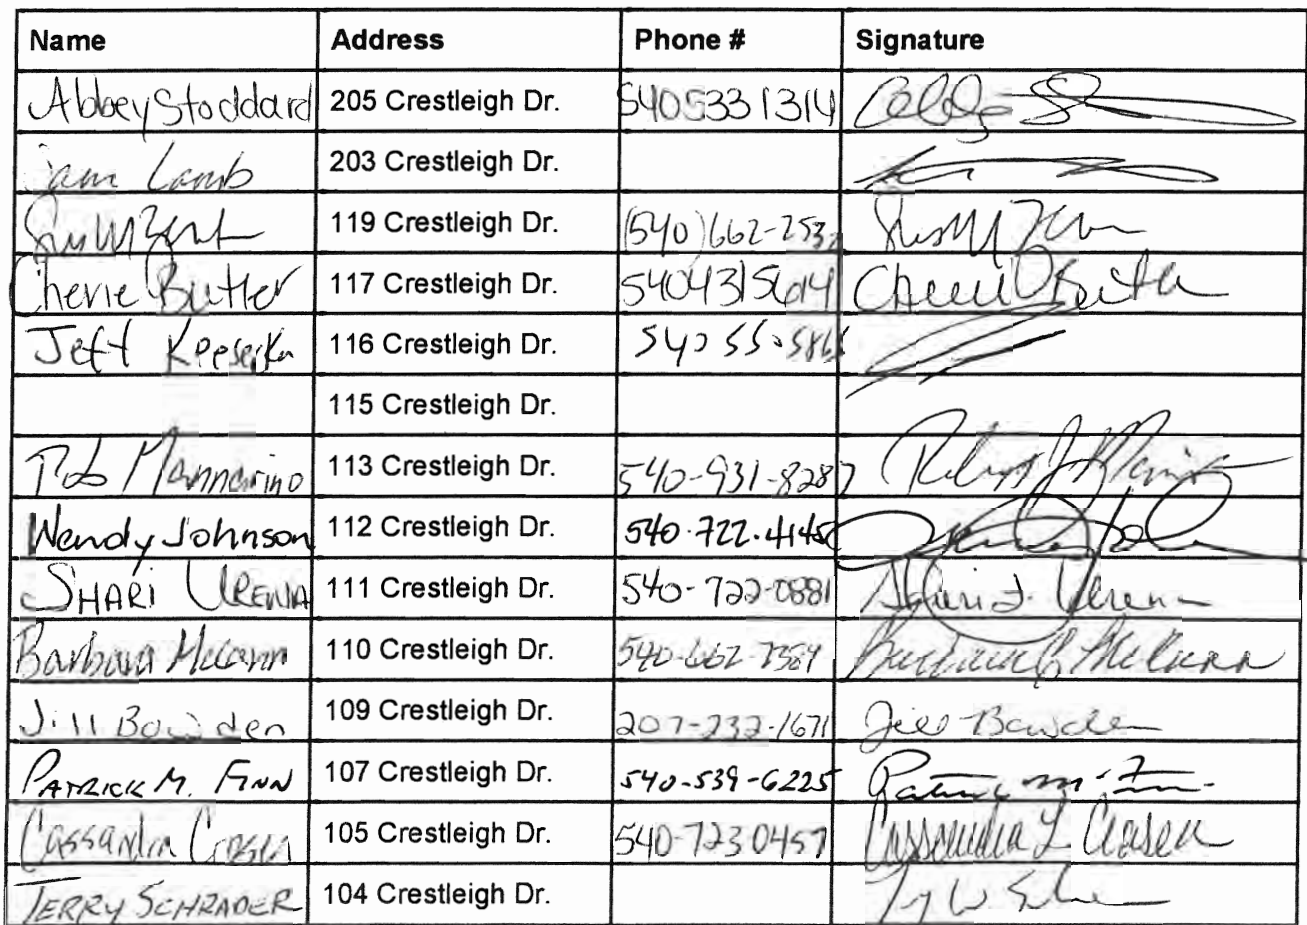 Name Address Phone # Signature
Abbey Stoddard 205 Crestleigh Dr. 5405331314
Sam Lamb 203 Crestleigh Dr.
119 Crestleigh Dr. (540)662-253
Cherie Butler 117 Crestleigh Dr. 5404315614 Cherie Butler
Jeff 116 Crestleigh Dr.
115 Crestleigh Dr.
Rob Mannarino 113 Crestleigh Dr. 540-931-8287
Wendy Johnson 112 Crestleigh Dr. 540.722.4145
SHARI URENA 111 Crestleigh Dr. 540-722-0881 Shari J. Urena
Barbara McCann 110 Crestleigh Dr. 540-662-7569 Barbara C McCann
Jill Bowden 109 Crestleigh Dr. 207-232-1671 Jill Bowden
PATRICK M. FINN 107 Crestleigh Dr. 540-539-6225 Patrick M. Finn
Cassandra Clasen 105 Crestleigh Dr. 540-723 0457 Cassandra L Clasen
TERRY SCHRADER 104 Crestleigh Dr.